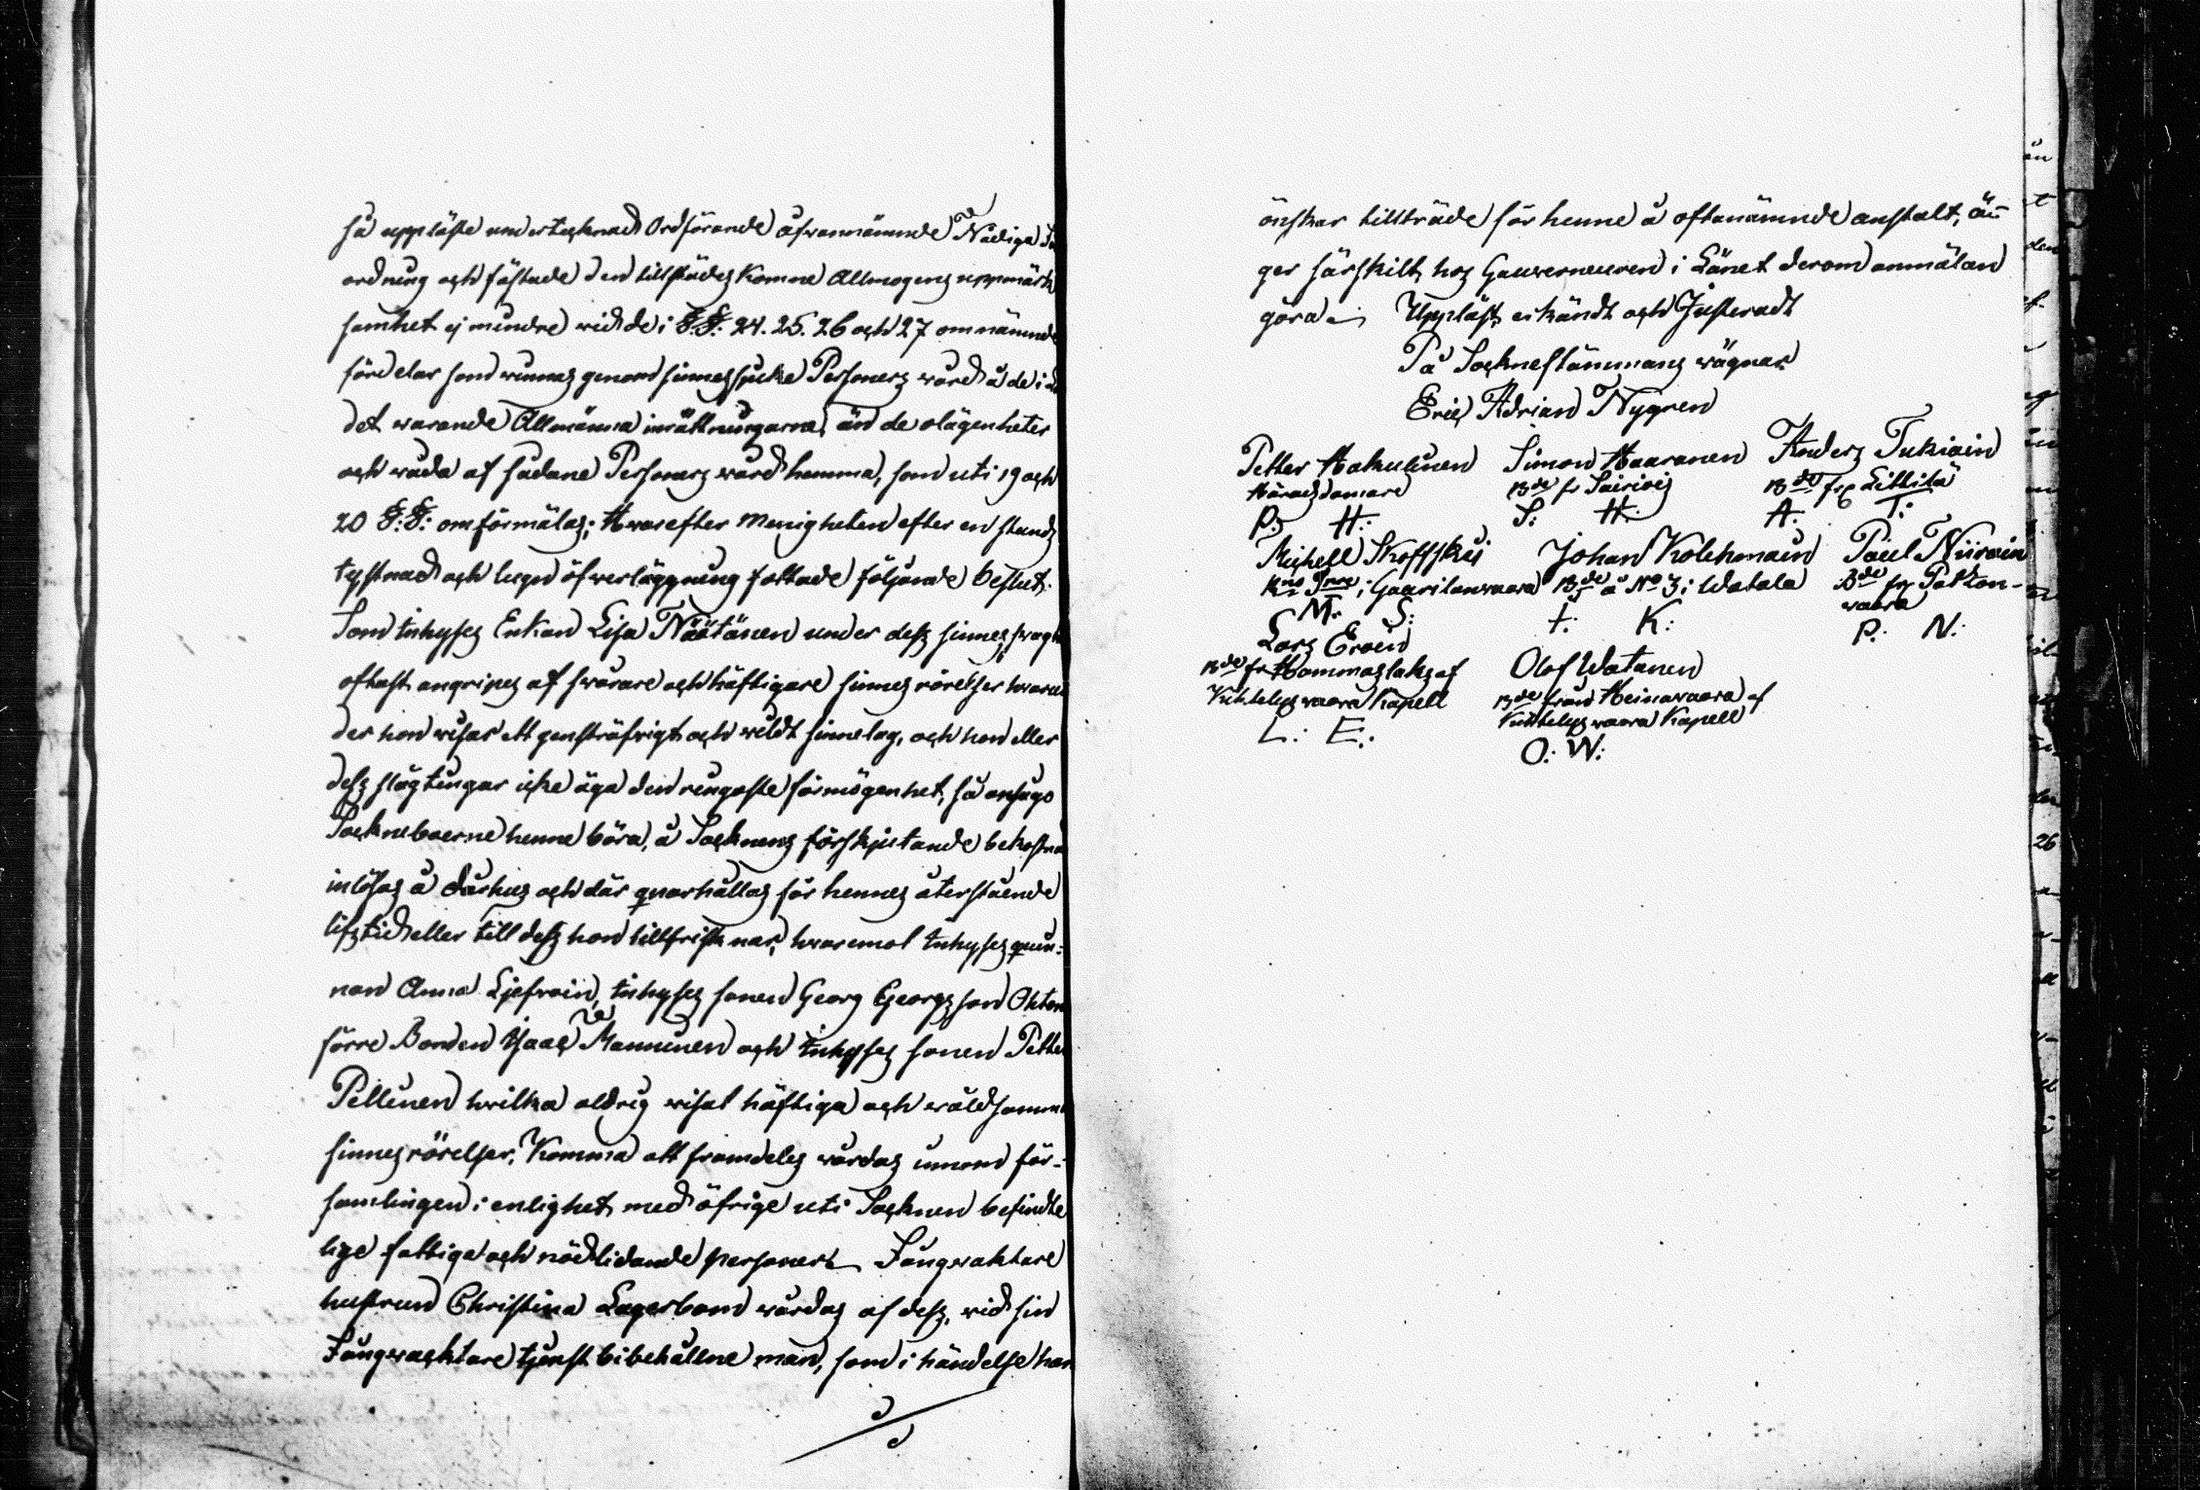 så uppläste undertecknad Ordförande ofvannämnde Nådiga
ordning och fästade den tillstädes komne Allmogens uppmärk
samhet ej mindre wid de i §.§: 24. 25. 26 och 27 omnämnde
fördelar som winnes genom sinnessjuke Personers wård å de i
det warande Allmänna inrättningarne, än de olägenheter
och wåda af sådane Personers wård hemma, som uti 19 och
20 §.§: omförmälas; Hwarefter menigheten efter en stunds
tystnad och lugn öfwerläggning fattade följande beslut:
Som inhyses Enkan Lisa Näätänen under dess sinnesswagh
oftast angripes af swårare och häftigare sinnes rörelser hwarun
der hon wisar ett gensträfwigt och wildt sinnelag, och hon eller
dess slägtingar icke äga den ringaste förmögenhet, så ansågo
Sockneboerne henne böra, å Socknens förskjutande bekostna
inlösas å dårhus och där qwarhållas för hennes återstående
lifstid eller till dess hon tillfrisknar, hwaremot inhyses qwin-
nan Anna Ljefwoin, inhyses sonen Georg Georgsson Okton
förre Bonden Isaac Mannunen och inhyses sonen Petter
Pellinen hwilka aldrig wisat häftiga och wåldsamma
sinnesrörelser, Komma att framdeles wårdas inom för-
samlingen i enlighet med öfrige uti Socknen befindte
lige fattiga och nödlidande personer Fångwaktare
hustrun Christina Lagerbom wårdas af dess, wid sin
Fångwacktare tjenst bibehållne man, som i händelse han
önskar tillträde för henne å oftanämnde anstalt, äu-
ger särskilt hos Gouverneuren i Länet derom anmälan
göra Uppläst, erkändt och Justeradt
På Socknestämmans wägnar
Eric Adrian Nygren
Petter Hakulinen Simon Haaranen Anders Tukiain
Häradsdomare Bde fr Sairiois Bde fr Littilä
P: H: S: H: A: T:
Michell Skoffskij Johan Kolehmain Påul Niiroin
i Gaurilanwaara Bde å No 3 i Watala Bde fr Potkon-
waara
M: S: I: K: P: N:
Lars Eroin
Bde fr Hammaslaks af Olof Watanen
Kihtelyswaara Kapell Bde från Heinawaara af
Kihtelyswaara Kapell
L: E: O: W: